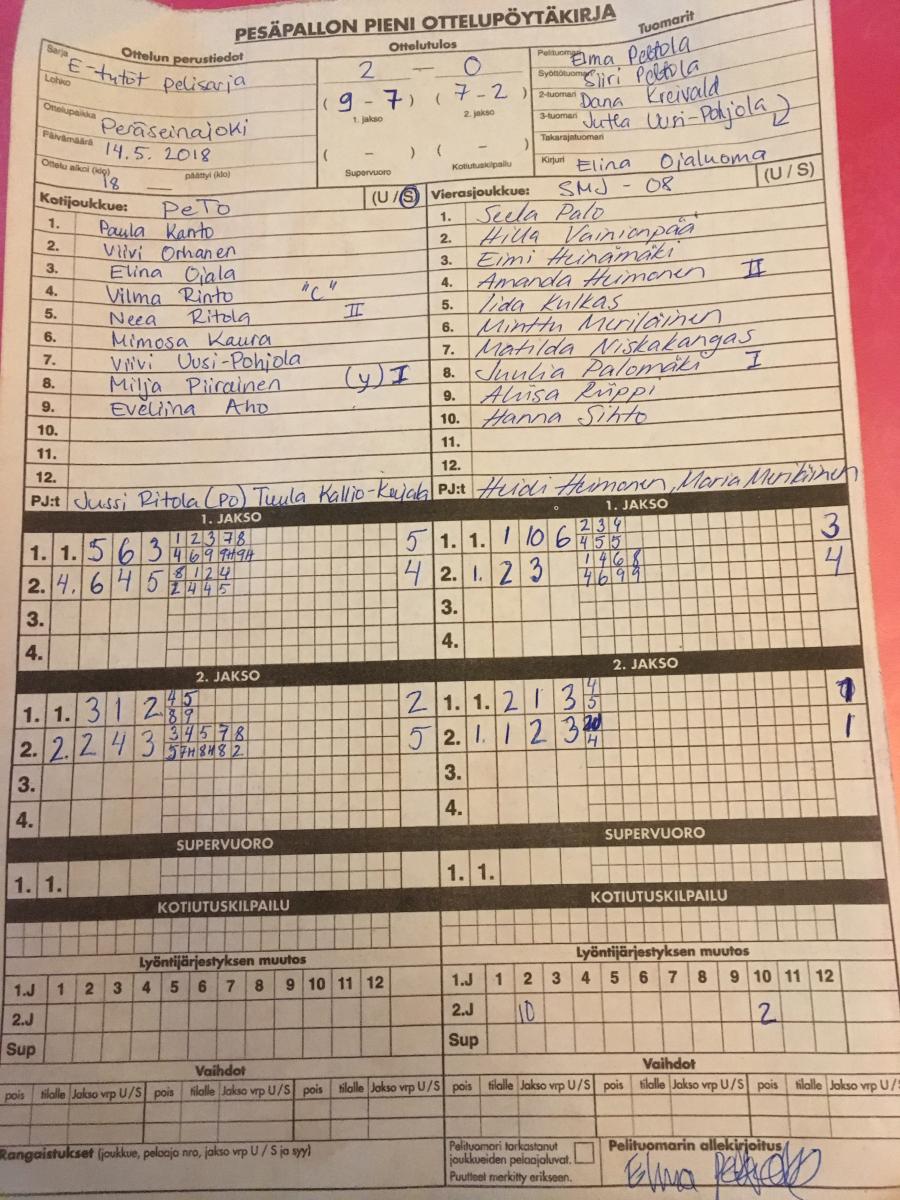 PESÄPALLON PIENI OTTELUPÖYTÄKIRJA
Ottelun perustiedot
Sarja E-tytöt pelisarja
Lohko
Ottelupaikka Peräseinäjoki
Päivämäärä 14.5. 2018
Ottelu alkoi (klo) 18 päättyi (klo)
Ottelutulos
2 — 0
( 9 - 7 ) ( 7 - 2 )
1. jakso 2. jakso
( – ) ( – )
Supervuoro Kotiutuskilpailu
Tuomarit
Pelituomari Elma Peltola
Syöttötuomari Siiri Peltola
2-tuomari Dana Kreivald
3-tuomari Jutta Uusi-Pohjola
Takarajatuomari
Kirjuri Elina Ojaluoma
Kotijoukkue: PeTo (U / S)
1. Paula Kanto
2. Viivi Orhanen
3. Elina Ojala
4. Vilma Rinto "C"
5. Neea Ritola II
6. Mimosa Kaura
7. Viivi Uusi-Pohjola
8. Milja Piirainen (y) I
9. Eveliina Aho
10.
11.
12.
PJ:t Jussi Ritola (PO) Tuula Kallio-
Vierasjoukkue: SMJ - 08 (U / S)
1. Seela Palo
2. Hilla Vainionpää
3. Eimi Heinämäki
4. Amanda Heimonen II
5. Iida Kulkas
6. Minttu Meriläinen
7. Matilda Niskakangas
8. Juulia Palomäki I
9. Aliisa Riippi
10. Hanna Sihto
11.
12.
PJ:t Heidi Heimonen, Maria
1. JAKSO
1. 1. 5 6 3 1 2 3 7 8 5
4 6 9 9H 9H
2. 4. 6 4 5 8 1 2 4 4
2 4 4 5
3.
4.
1. JAKSO
1. 1. 1 10 6 2 3 4 3
4 5 5
2. 1. 2 3 1 4 6 8 4
4 6 9 9
3.
4.
2. JAKSO
1. 1. 3 1 2 4 5 2
8 9
2. 2. 2 4 3 3 4 5 7 8 5
5 7H 8H 8 2
3.
4.
2. JAKSO
1. 1. 2 1 3 4 1
5
2. 1. 1 2 3 1
4
3.
4.
SUPERVUORO
1. 1.
SUPERVUORO
1. 1.
KOTIUTUSKILPAILU
KOTIUTUSKILPAILU
Lyöntijärjestyksen muutos
1.J 1 2 3 4 5 6 7 8 9 10 11 12
2.J
Sup
Lyöntijärjestyksen muutos
1.J 1 2 3 4 5 6 7 8 9 10 11 12
2.J 10 2
Sup
Vaihdot
pois tilalle Jakso vrp U / S pois tilalle Jakso vrp U / S pois tilalle Jakso vrp U / S
Vaihdot
pois tilalle Jakso vrp U / S pois tilalle Jakso vrp U / S pois tilalle Jakso vrp U / S
Rangaistukset (joukkue, pelaaja nro, jakso vrp U / S ja syy)
Pelituomari tarkastanut
joukkueiden pelaajaluvat.
Puutteet merkitty erikseen.
Pelituomarin allekirjoitus
Elma Peltola